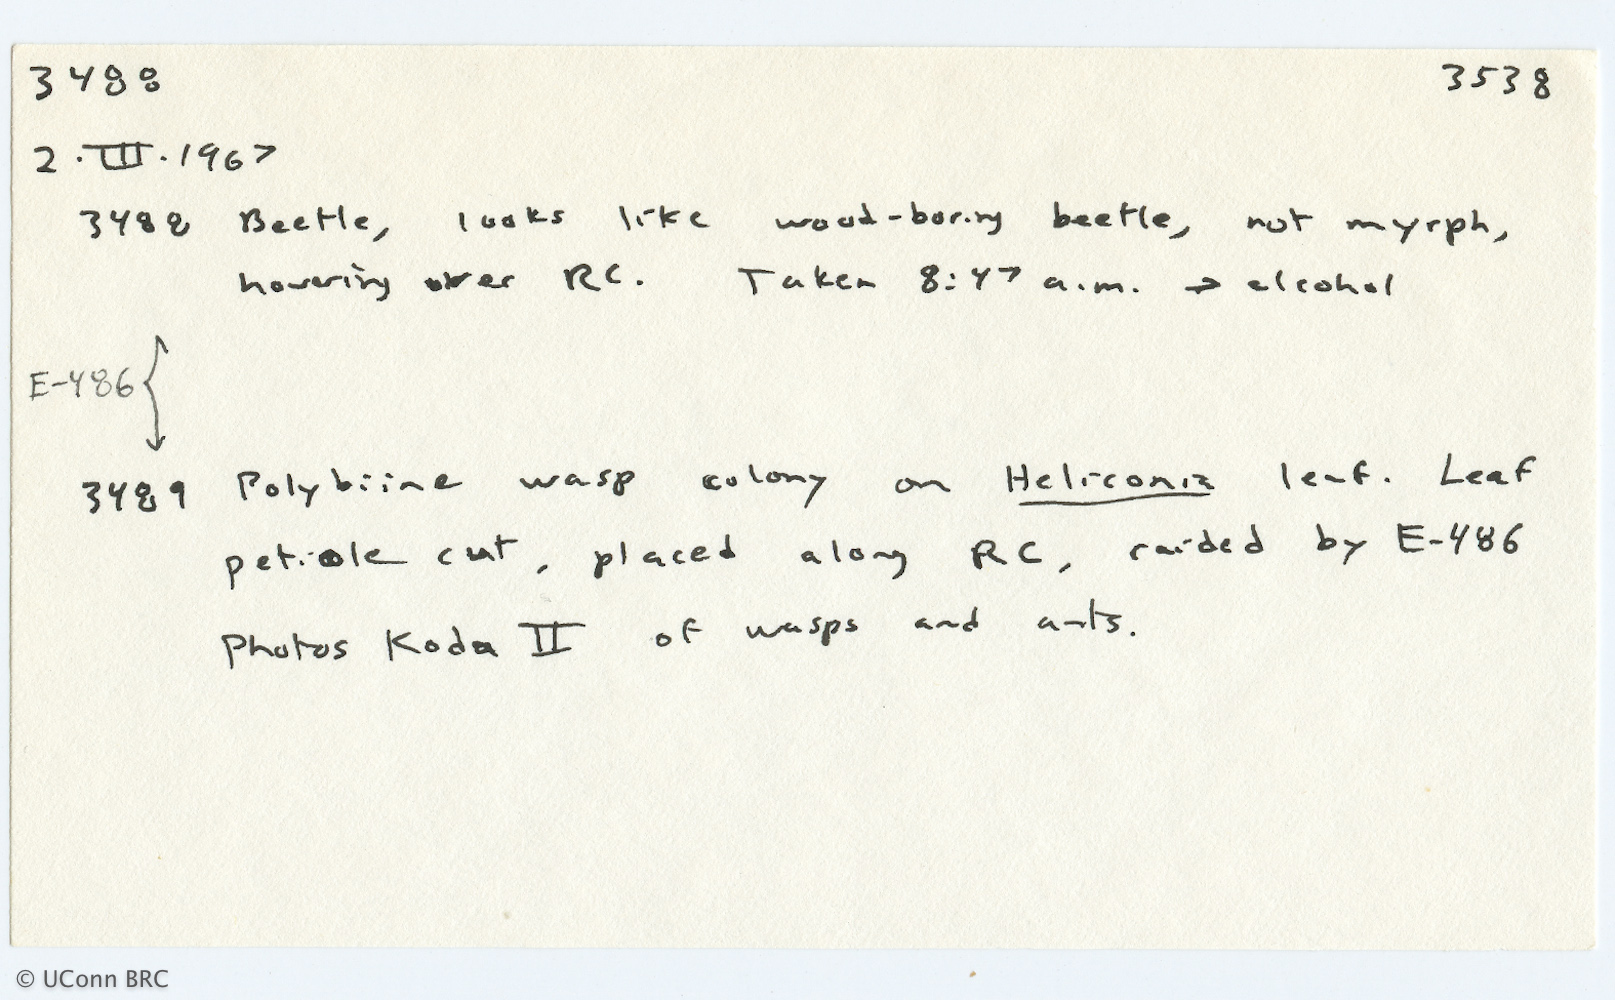 3488 3538
2·III·1967
3488 Beetle, looks like wood-boring beetle, not myrph,
hovering over RC. Taken 8:47 a.m. → alcohol
E-486
3489 Polybiine wasp colony on Heliconia leaf. Leaf
petiole cut, placed along RC, raided by E-486
Photos Koda II of wasps and ants.
© UConn BRC